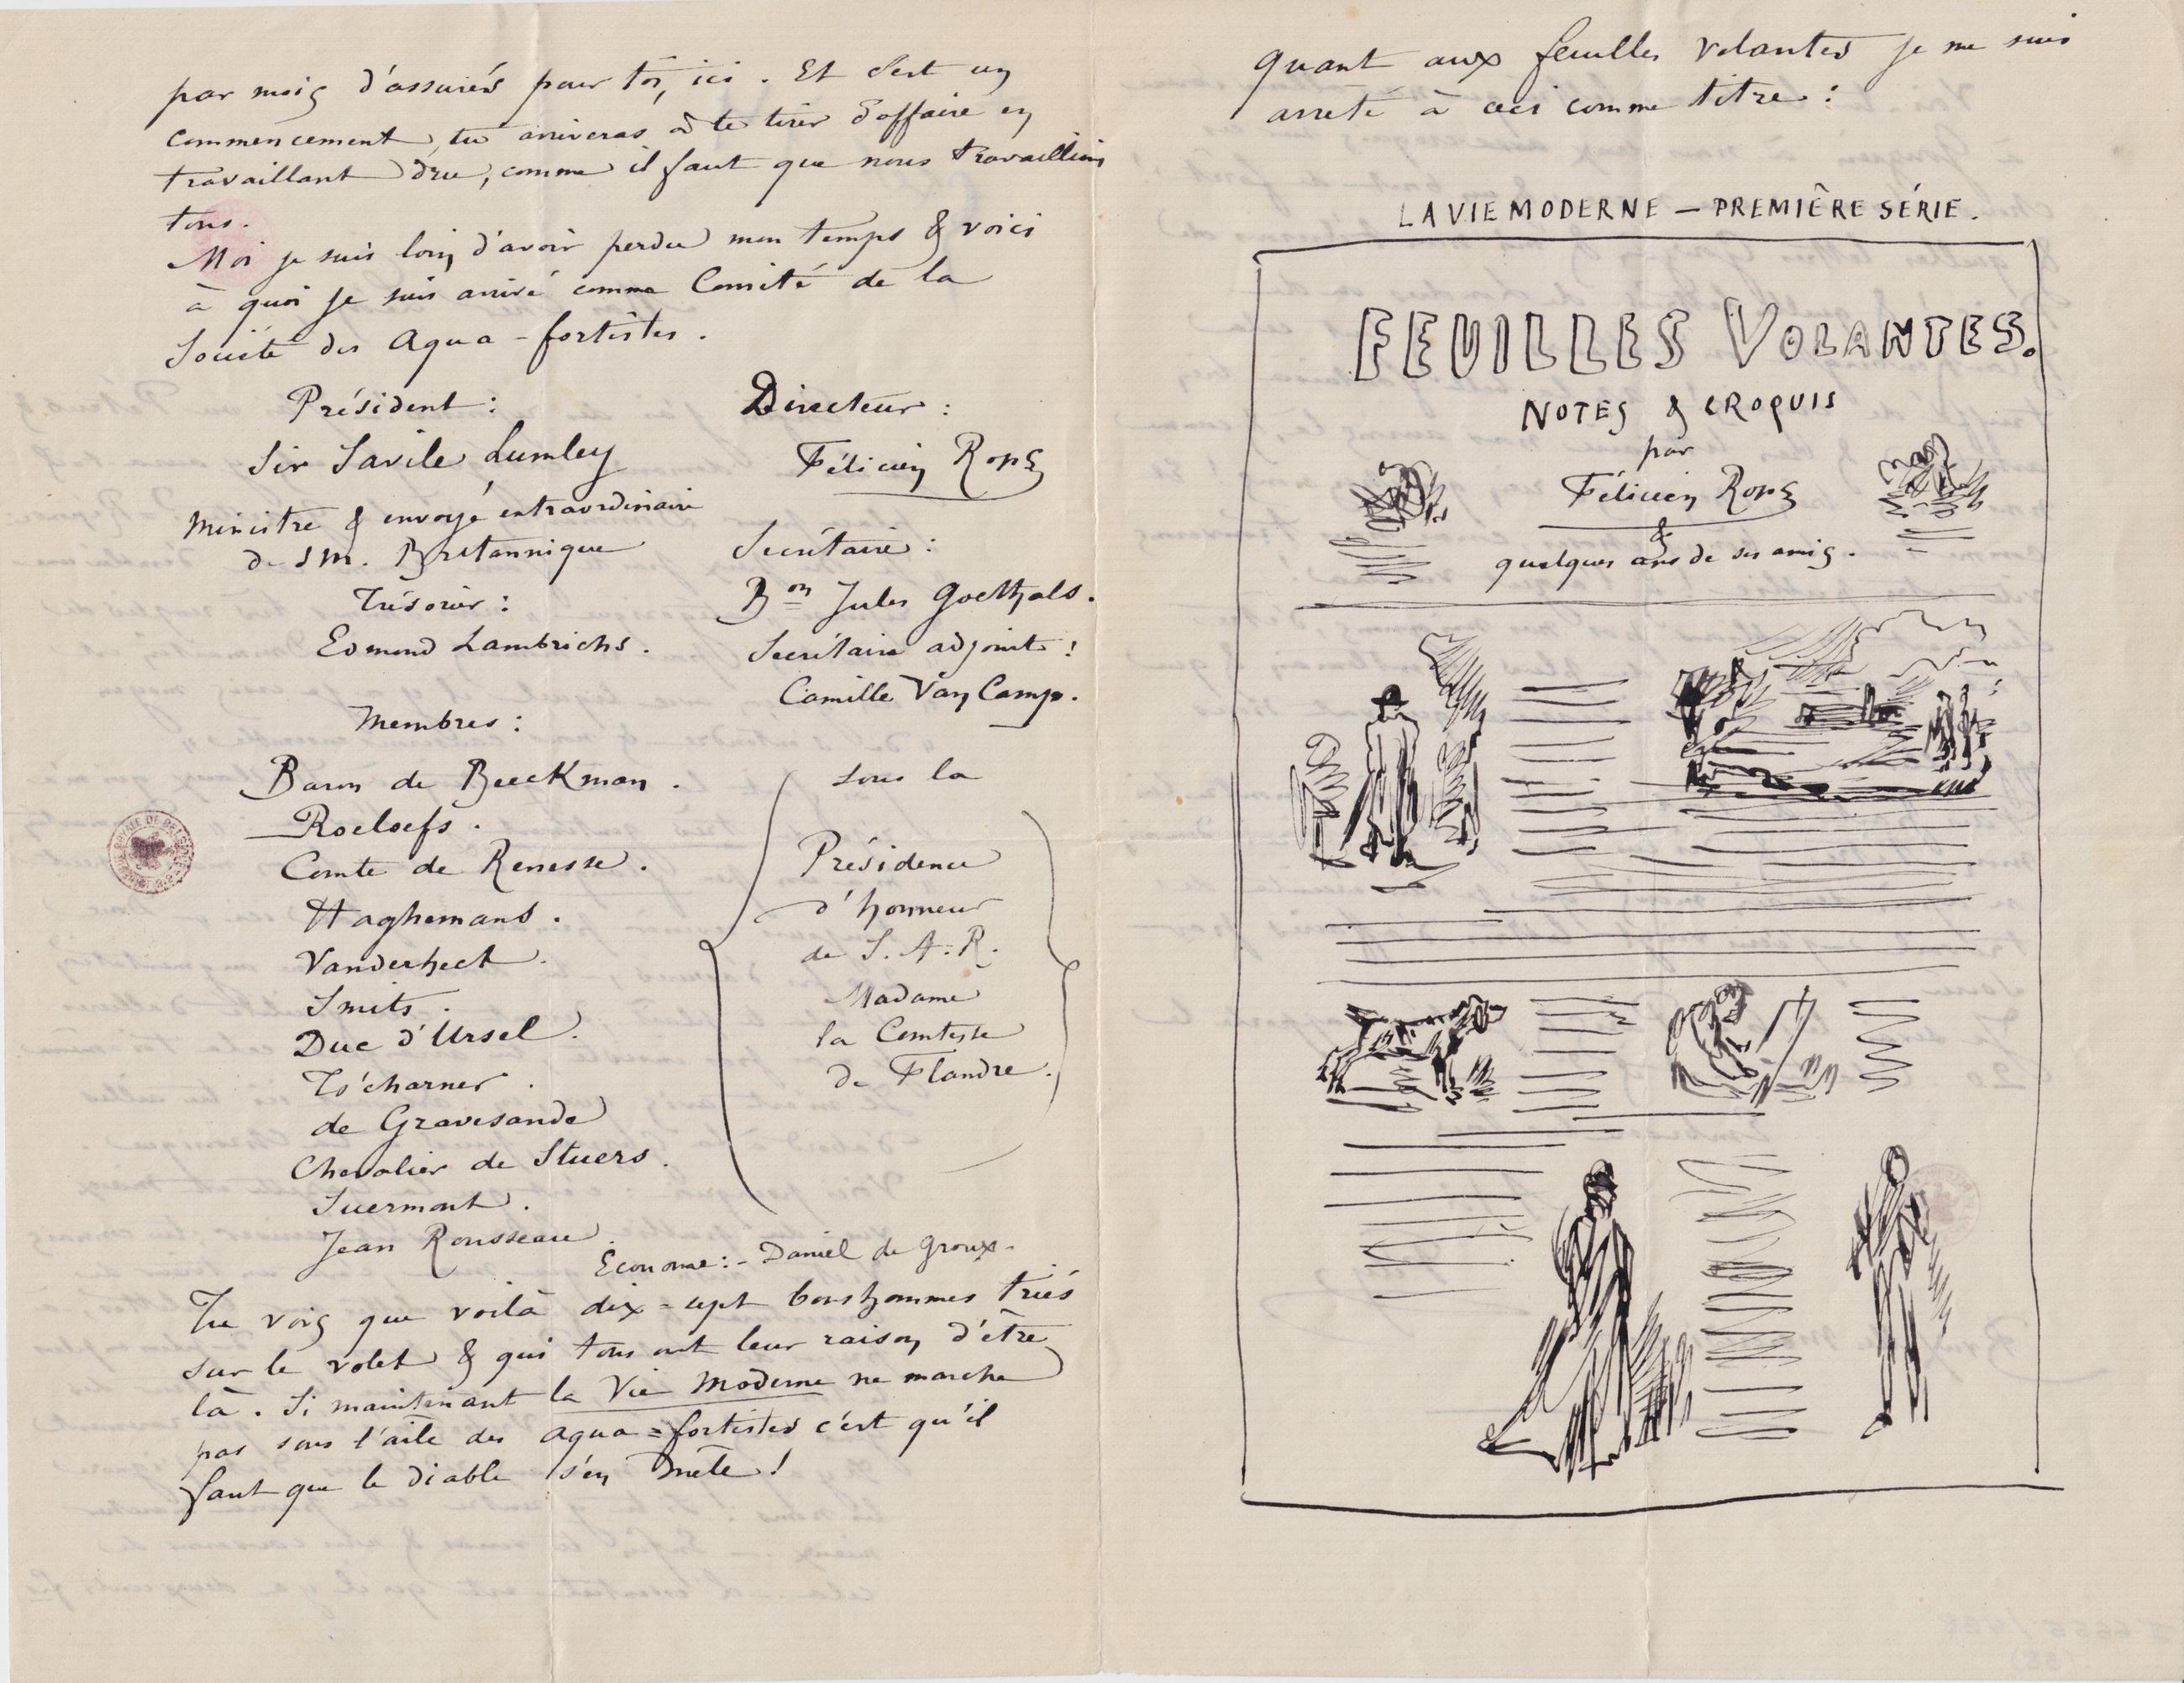 par mois d'assurés pour toi, ici. Et c'est un
commencement, tu arriveras à te tirer d'affaire en
travaillant dru, comme il faut que nous travaillions
tous.
Moi je suis loin d'avoir perdu mon temps & voici
à quoi je suis arrivé comme Comité de la
Société des Aqua-fortistes.
Président :
Sir Savile Lumley
Ministre & envoyé extraordinaire
de S M. Britannique
Trésorier :
Edmond Lambrichs.
Directeur :
Félicien Rops
Secrétaire :
Bon Jules Goethals.
Secrétaire adjoint :
Camille Van Camp.
Membres :
Baron de Beeckman.
Roeloefs.
Comte de Renesse.
Haghemans.
Vanderhect.
Smits.
Duc d'Ursel.
Ts'charner.
de Gravesande
Chevalier de Stuers.
Suermont.
Jean Rousseau
sous la
Présidence
d'honneur
de S. A. R.
Madame
la Comtesse
de Flandre.
Econome : - Daniel de Groux.
Tu vois que voilà dix=sept bonshommes triés
sur le volet & qui tous ont leur raison d'être
là. Si maintenant la Vie Moderne ne marche
pas sous l'aile des aqua=fortistes c'est qu'il
faut que le diable s'en mêle !
Quant aux feuilles volantes je me suis
arrêté à ceci comme titre :
LA VIE MODERNE – PREMIÈRE SÉRIE.
FEUILLES VOLANTES.
NOTES & CROQUIS
par
Félicien Rops
&
quelques uns de ses amis.